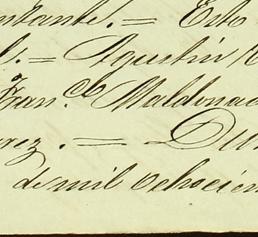 ntante. = Esto
l. = Agustin
Fran.co Maldonad
rez. = Du
de mil ochocien